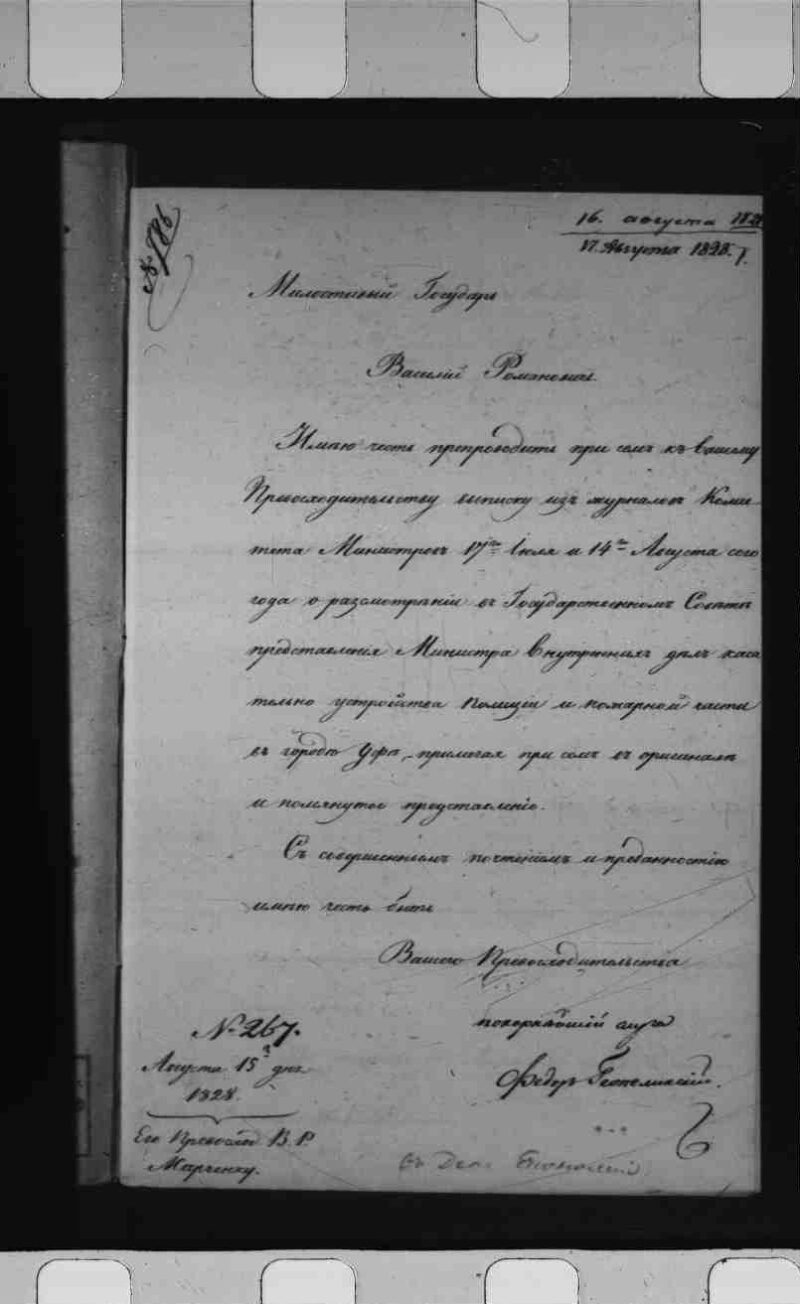 № 186
16. августа 1828
17. Августа 1828.
Милостивый Государь
Василій Романовичь.
Имѣю честь препроводить при семъ къ Вашему
Превосходительству выписку изъ журналовъ Коми-
тета Министровъ 17го Іюля и 14го Августа сего
года о разсмотрѣніи въ Государственномъ Совѣтѣ
представленія Министра Внутреннихъ дѣлъ каса
тельно устройства Полиціи и пожарной части
въ городѣ Уфѣ, прилагая при семъ въ оригиналѣ
и помянутое представленіе.
Съ совершеннымъ почтеніемъ и преданностію
имѣю честь быть
Вашего Превосходительства
покорнѣйшій слуга
Федоръ
№ 267.
Августа 15 дня
1828.
Его Превосхо В. Р.
Марченку.
Въ Деп. Економіи